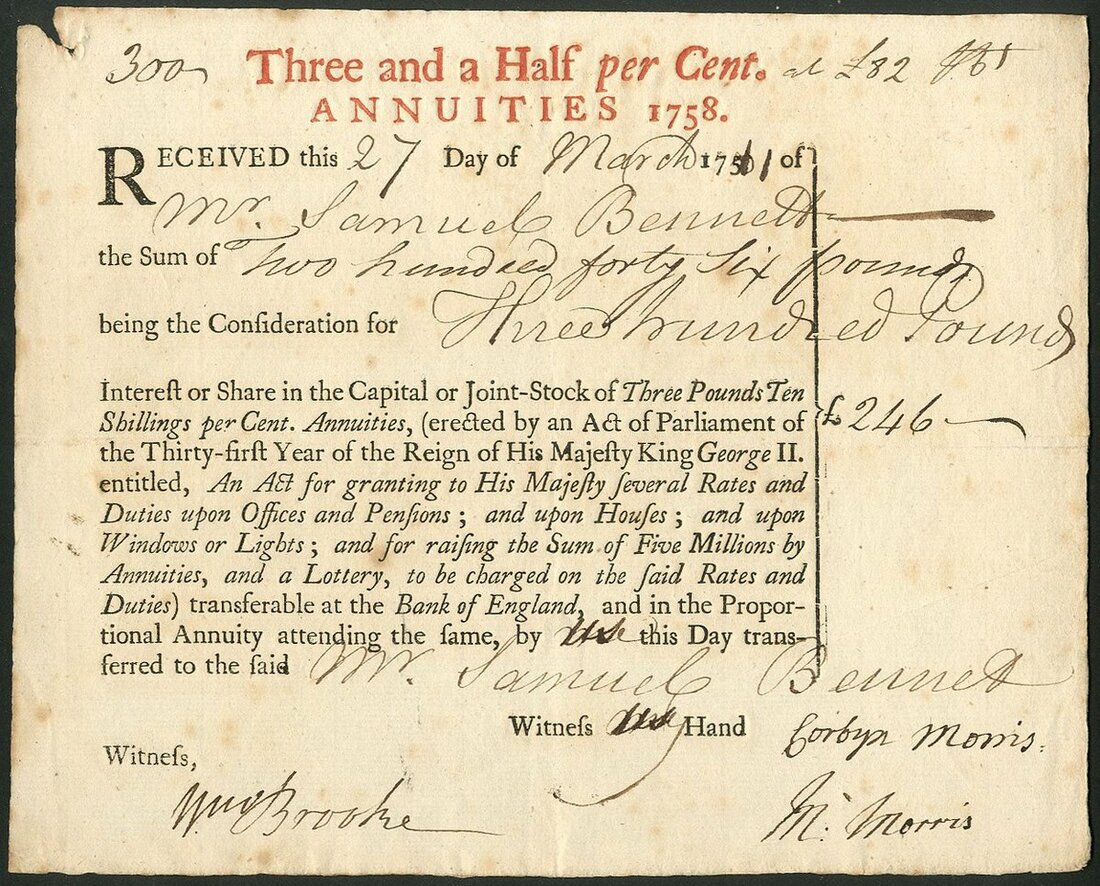 300 Three and a Half per Cent. at £82 
ANNUITIES 1758.
RECEIVED this 27 Day of March 17 1 of
Mr. Samuel Bennett
the Sum of Two hundred forty Six pounds
being the Consideration for Three hundred Pounds
Intereſt or Share in the Capital or Joint-Stock of Three Pounds Ten
Shillings per Cent. Annuities, (erected by an Act of Parliament of £246
the Thirty-firſt Year of the Reign of His Majeſty King George II.
entitled, An Act for granting to His Majeſty ſeveral Rates and
Duties upon Offices and Penſions; and upon Houſes; and upon
Windows or Lights; and for raiſing the Sum of Five Millions by
Annuities, and a Lottery, to be charged on the ſaid Rates and
Duties) transferable at the Bank of England, and in the Propor-
tional Annuity attending the ſame, by us this Day trans-
ferred to the ſaid Mr. Samuel Bennett
Witneſs our Hand Corbyn Morris.
Witneſs,
Wm Brooke M. Morris